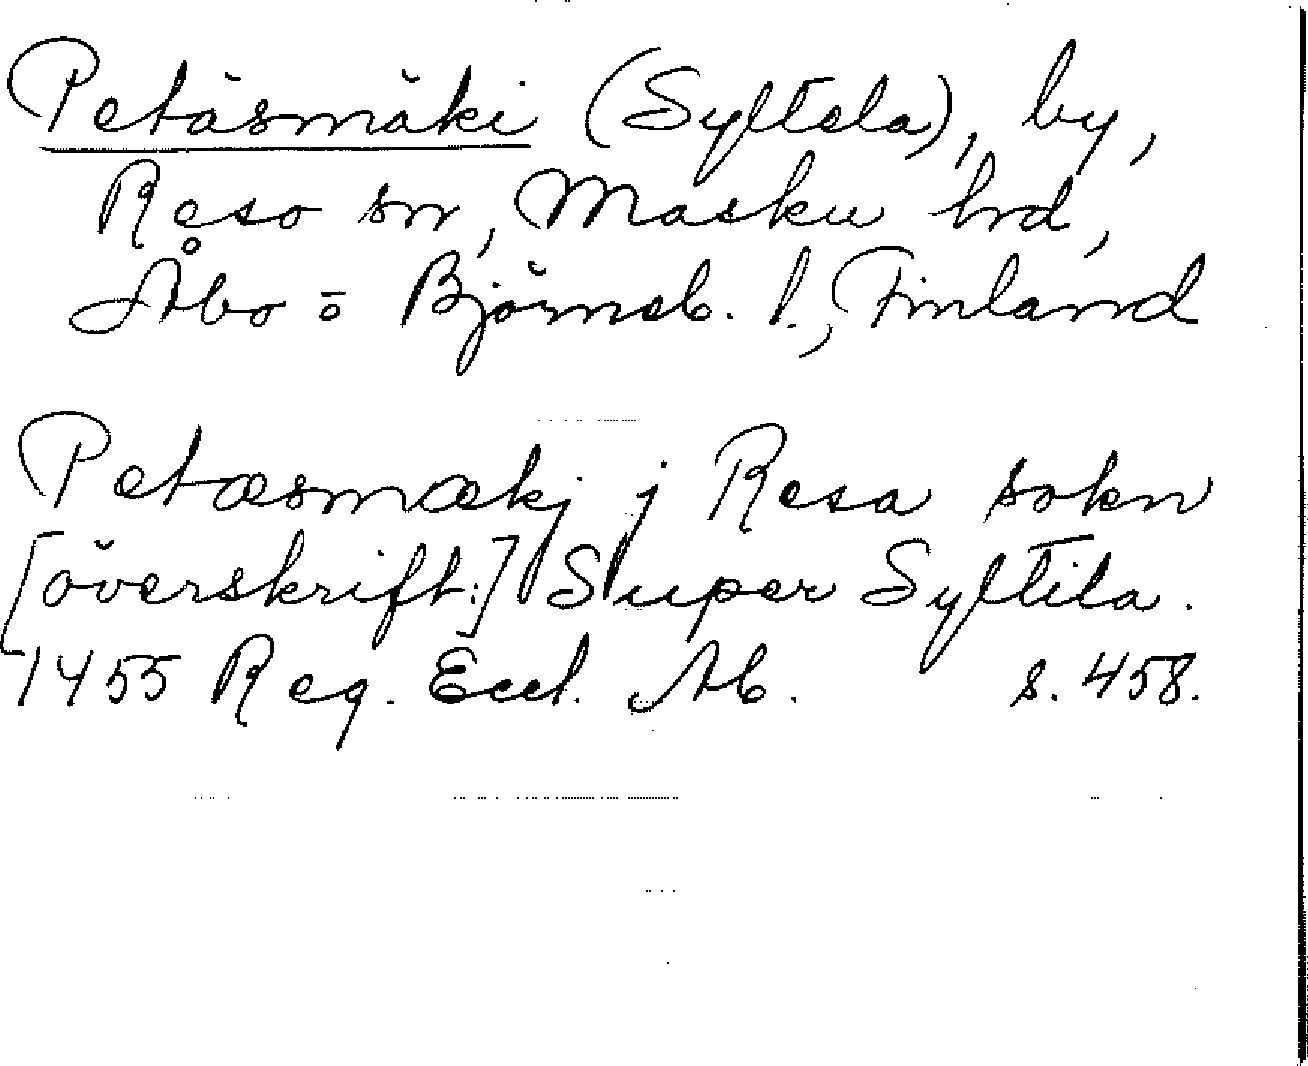 Petäsmäki (Syltela), by,
Reso sn, Masku hd,
Åbo ō Björneb. l., Finland
Petæsmækj j Resa sokn
[överskrift:] Super Syltila.
1455 Reg. Eccl. Ab. s. 458.